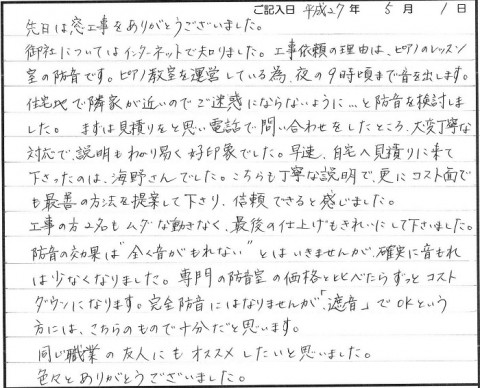 ご記入日 平成27年 5月 1日
先日は窓工事をありがとうございました。
御社についてはインターネットで知りました。工事依頼の理由は、ピアノのレッスン
室の防音です。ピアノ教室を運営している為、夜の9時頃まで音を出します。
住宅地で隣家が近いのでご迷惑にならないように…と防音を検討しま
した。 まずは見積りをと思い電話で問い合わせをしたところ、大変丁寧な
対応で、説明もわかり易く好印象でした。早速、自宅へ見積りに来て
下さったのは、海野さんでした。こちらも丁寧な説明で、更にコスト面で
も最善の方法を提案して下さり、信頼できると感じました。
工事の方2名もムダな動きなく、最後の仕上げもきれいにして下さいました。
防音の効果は"全く音がもれない"とはいきませんが、確実に音もれ
は少なくなりました。専門の防音室の価格とくらべたらずっとコスト
ダウンになります。完全防音にはなりませんが「遮音」でOKという
方には、こちらのもので十分だと思います。
同じ職業の友人にもオススメしたいと思いました。
色々とありがとうございました。